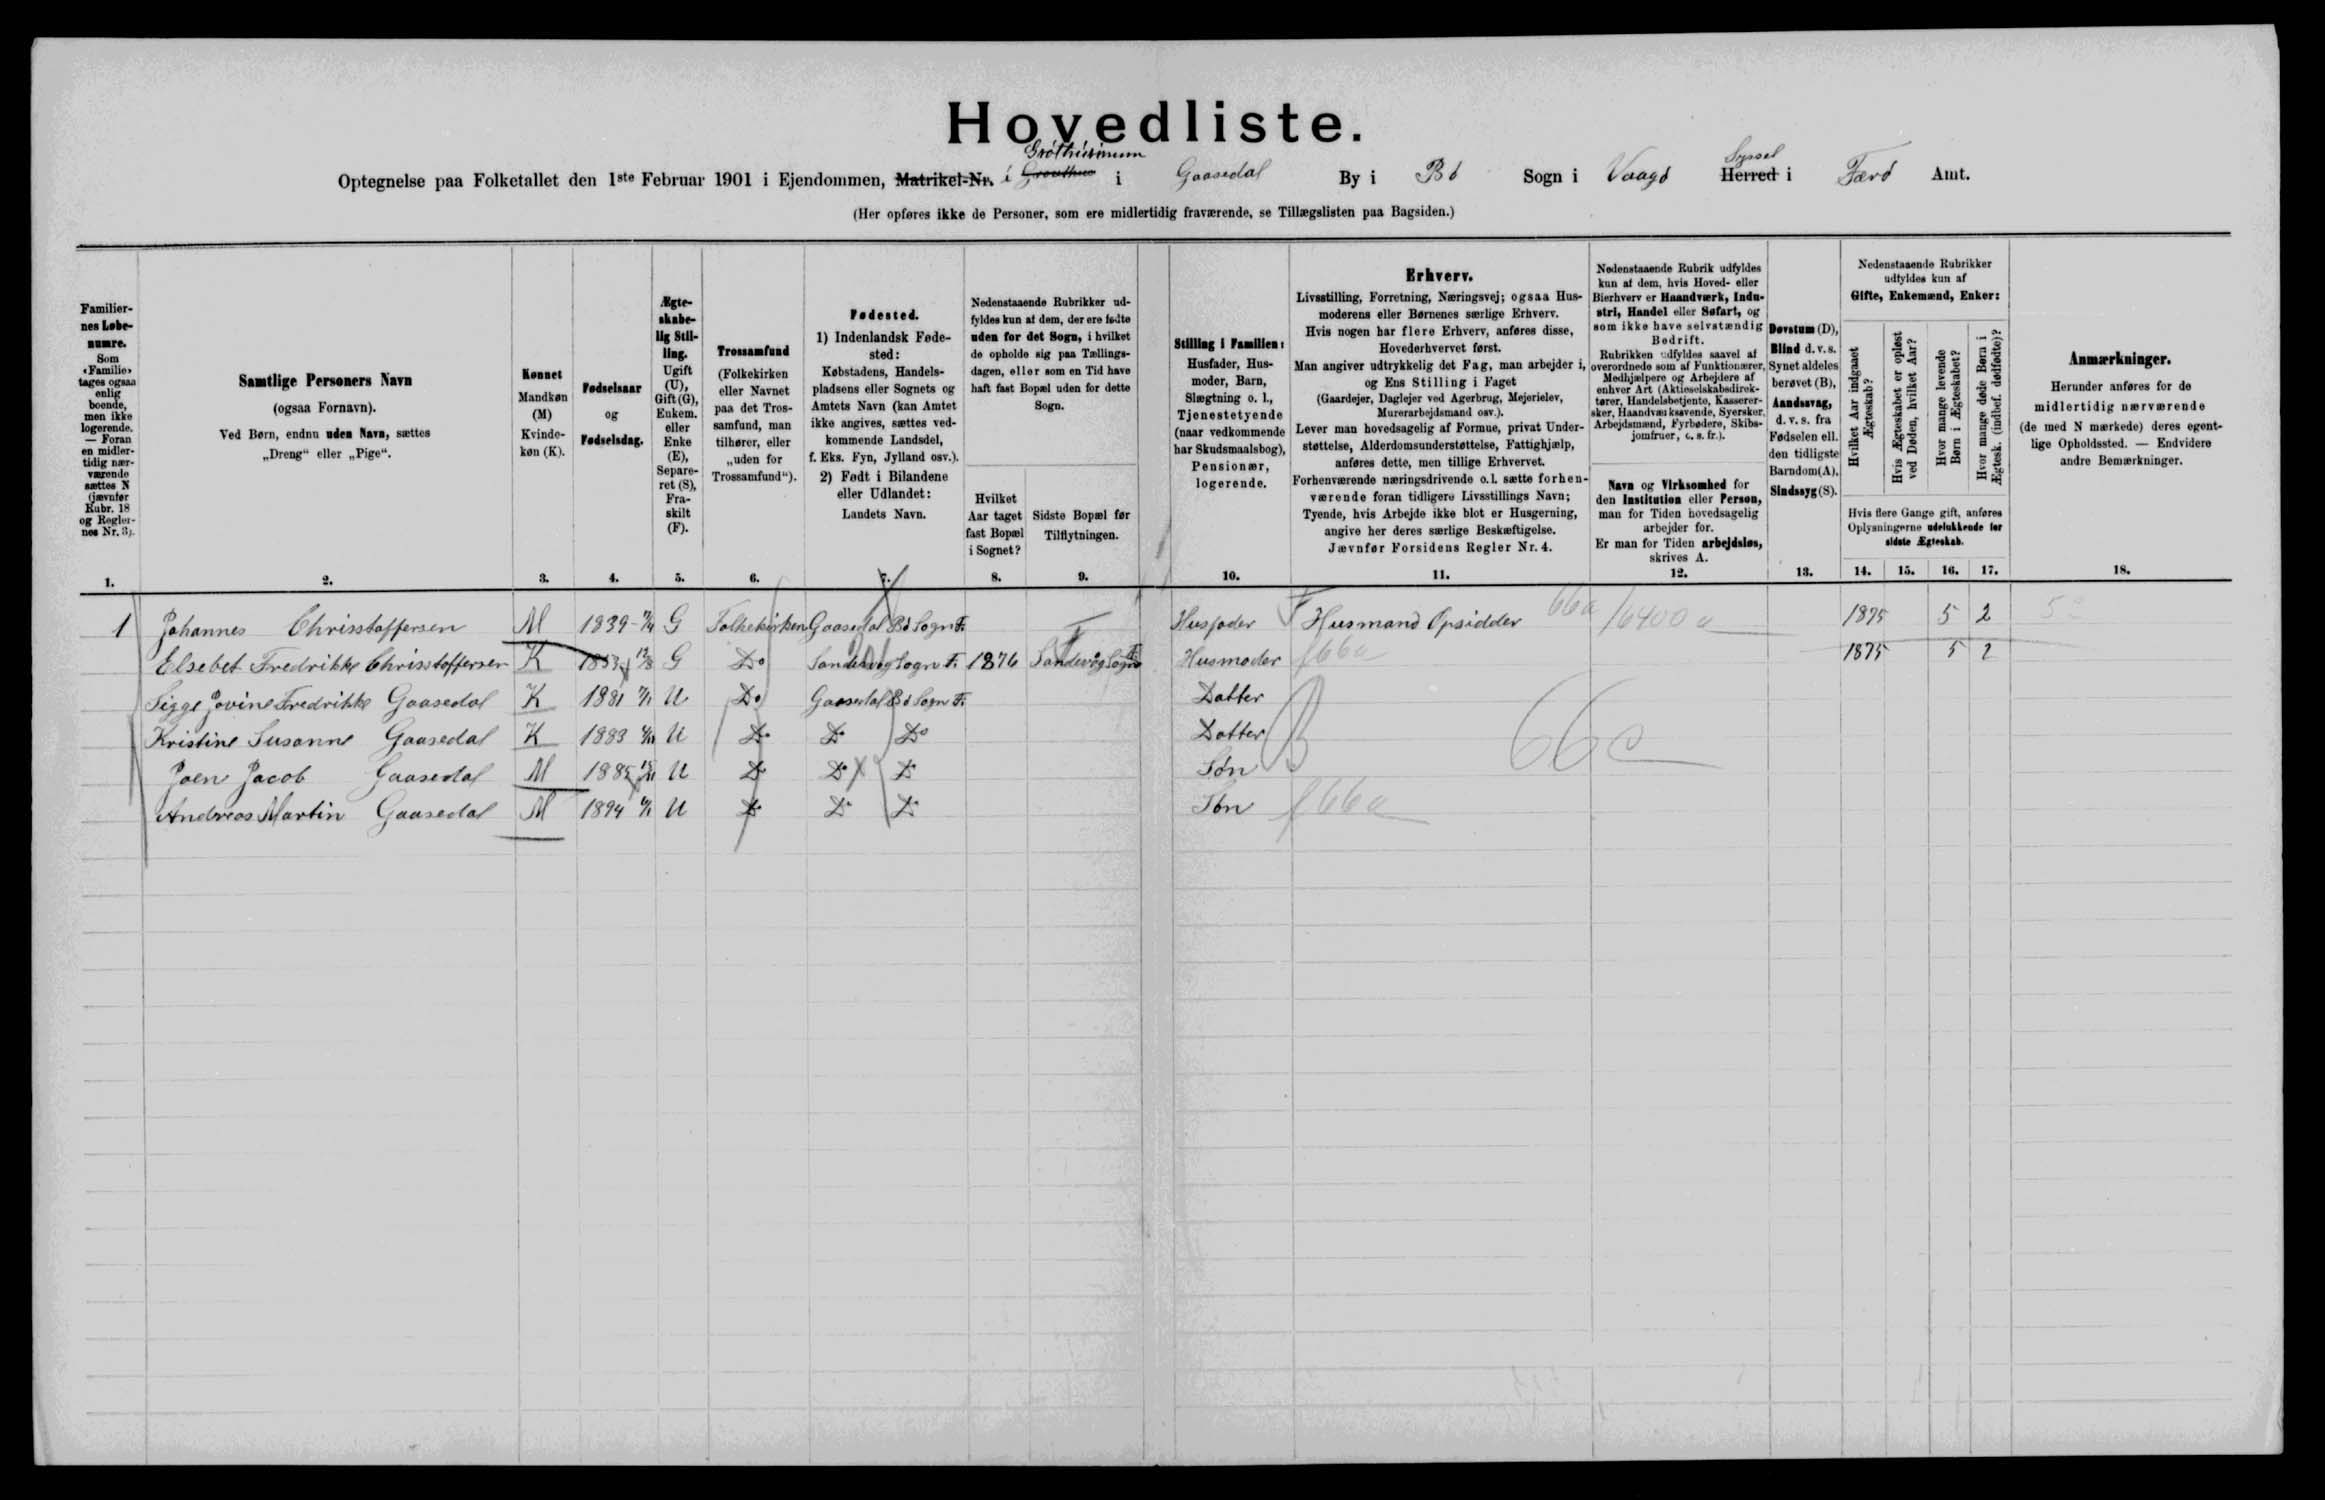 Hovedliste.
Optegnelse paa Folketallet den 1ste Februar 1901 i Ejendommen, Matrikel-Nr. i Gróthúsinum i Gaasedal By i Bø Sogn i Vaagø Syssel Herred i Færø Amt.
(Her opføres ikke de Personer, som ere midlertidig fraværende, se Tillægslisten paa Bagsiden.)
Familiernes Løbenumre.
Som «Familie» tages ogsaa enlig boende, men ikke logerende. — Foran en midlertidig nærværende sættes N (jævnfør Rubr. 18 og Reglernes Nr. 3).
1.
Samtlige Personers Navn
(ogsaa Fornavn).
Ved Børn, endnu uden Navn, sættes
„Dreng“ eller „Pige“.
2.
Kønnet
Mandkøn
(M)
Kvinde-
køn (K).
3.
Fødselsaar
og
Fødselsdag.
4.
Ægte-
skabe-
lig Stil-
ling.
Ugift
(U),
Gift (G),
Enkem.
eller
Enke
(E),
Separe-
ret (S),
Fra-
skilt
(F).
5.
Trossamfund
(Folkekirken
eller Navnet
paa det Tros-
samfund, man
tilhører, eller
„uden for
Trossamfund“).
6.
Fødested.
1) Indenlandsk Føde-
sted:
Købstadens, Handels-
pladsens eller Sognets og
Amtets Navn (kan Amtet
ikke angives, sættes ved-
kommende Landsdel,
f. Eks. Fyn, Jylland osv.).
2) Født i Bilandene
eller Udlandet:
Landets Navn.
7.
Nedenstaaende Rubrikker ud-
fyldes kun af dem, der ere fødte
uden for det Sogn, i hvilket
de opholde sig paa Tællings-
dagen, eller som en Tid have
haft fast Bopæl uden for dette
Sogn.
Hvilket
Aar taget
fast Bopæl
i Sognet?
8.
Sidste Bopæl før
Tilflytningen.
9.
Stilling i Familien:
Husfader, Hus-
moder, Barn,
Slægtning o. l.,
Tjenestetyende
(naar vedkommende
har Skudsmaalsbog),
Pensionær,
logerende.
10.
Erhverv.
Livsstilling, Forretning, Næringsvej; ogsaa Hus-
moderens eller Børnenes særlige Erhverv.
Hvis nogen har flere Erhverv, anføres disse,
Hovederhvervet først.
Man angiver udtrykkelig det Fag, man arbejder i,
og Ens Stilling i Faget
(Gaardejer, Daglejer ved Agerbrug, Mejerielev,
Murerarbejdsmand osv.).
Lever man hovedsagelig af Formue, privat Under-
støttelse, Alderdomsunderstøttelse, Fattighjælp,
anføres dette, men tillige Erhvervet.
Forhenværende næringsdrivende o. l. sætte forhen-
værende foran tidligere Livsstillings Navn;
Tyende, hvis Arbejde ikke blot er Husgerning,
angive her deres særlige Beskæftigelse.
Jævnfør Forsidens Regler Nr. 4.
11.
Nedenstaaende Rubrik udfyldes
kun af dem, hvis Hoved- eller
Bierhverv er Haandværk, Indu-
stri, Handel eller Søfart, og
som ikke have selvstændig
Bedrift.
Rubrikken udfyldes saavel af
overordnede som af Funktionærer,
Medhjælpere og Arbejdere af
enhver Art (Aktieselskabsdirek-
tører, Handelsbetjente, Kasserer-
sker, Haandværkssvende, Syersker,
Arbejdsmænd, Fyrbødere, Skibs-
jomfruer, o. s. fr.).
Navn og Virksomhed for
den Institution eller Person,
man for Tiden hovedsagelig
arbejder for.
Er man for Tiden arbejdsløs,
skrives A.
12.
Døvstum (D),
Blind d. v. s.
Synet aldeles
berøvet (B),
Aandssvag,
d. v. s. fra
Fødselen ell.
den tidligste
Barndom (A),
Sindssyg (S).
13.
Nedenstaaende Rubrikker
udfyldes kun af
Gifte, Enkemænd, Enker:
Hvilket Aar indgaaet Ægteskab?
Hvis Ægteskabet er opløst ved Døden, hvilket Aar?
Hvor mange levende Børn i Ægteskabet?
Hvor mange døde Børn i Ægtesk. (indbef. dødfødte)?
Hvis flere Gange gift, anføres
Oplysningerne udelukkende for
sidste Ægteskab.
14. 15. 16. 17.
Anmærkninger.
Herunder anføres for de
midlertidig nærværende
(de med N mærkede) deres egent-
lige Opholdssted. — Endvidere
andre Bemærkninger.
18.
1 Johannes Chrisstoffersen M 1839 G Folkekirken Gaasedal Bø Sogn F. Husfader Husmand Opsidder 66a 1875 5 2
Elsebet Fredrikke Chrisstoffersen K 1853 G Do Sandevog Sogn F. 1876 Sandevog Sogn Husmoder f66a 1875 5 2
Sigge Jovine Fredrikke Gaasedal K 1881 U Do Gaasedal Bø Sogn F. Datter
Kristine Susanne Gaasedal K 1883 U Do Do Do Datter 66c
Joen Jacob Gaasedal M 1885 U Do Do Do Søn
Andreas Martin Gaasedal M 1894 U Do Do Do Søn f66a